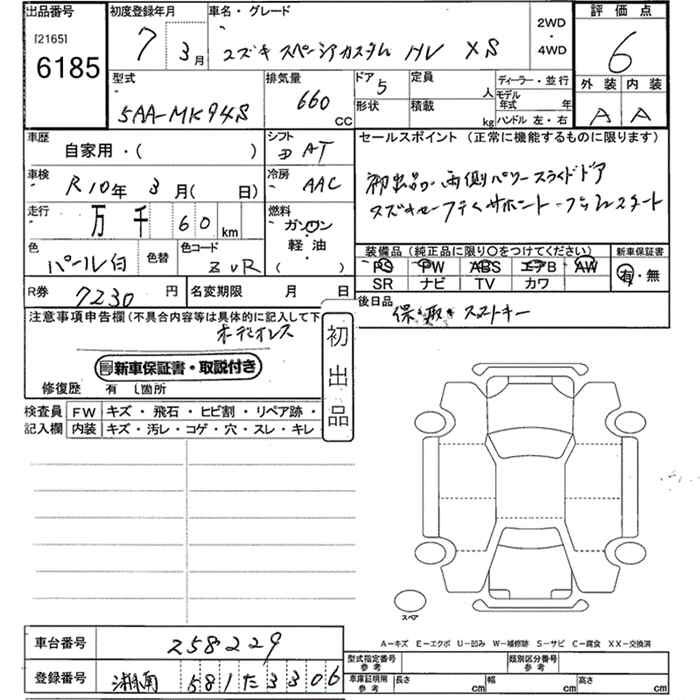 出品番号
[2165]
6185
初度登録年月
7 3月
車名・グレード
スズキ スペーシアカスタム HV XS
2WD
・
4WD
評価点
6
外装 内装
A A
型式
5AA-MK94S
排気量
660 cc
ドア 5
形状
定員 人
積載 kg
ディーラー・並行
モデル年式 年
ハンドル 左・右
車歴
自家用・( )
シフト
AT
車検
R10年 3月( 日)
冷房
AAC
走行
万 千 60 km
燃料
ガソリン
軽油
( )
色
パール白
色替
色コード
ZVR
R券
7230 円
名変期限 月 日
セールスポイント(正常に機能するものに限ります)
初出品 両側パワースライドドア
スズキセーフティサポート プッシュスタート
装備品(純正品に限り○をつけてください)
PS PW ABS エアB AW
SR ナビ TV カワ
新車保証書
有・無
後日品
保・取 スマートキー
注意事項申告欄(不具合内容等は具体的に記入して下
オーディオレス
新車保証書・取説付き
初出品
修復歴 有 箇所
検査員記入欄
FW キズ・飛石・ヒビ割・リペア跡・
内装 キズ・汚レ・コゲ・穴・スレ・キレ・
スペア
A-キズ E-エクボ U-凹み W-補修跡 S-サビ C-腐食 XX-交換済
車台番号
258229
登録番号
湘南 581 た 3306
型式指定番号
参考
類別区分番号
参考
車庫証明用
参考
長さ cm
幅 cm
高さ cm